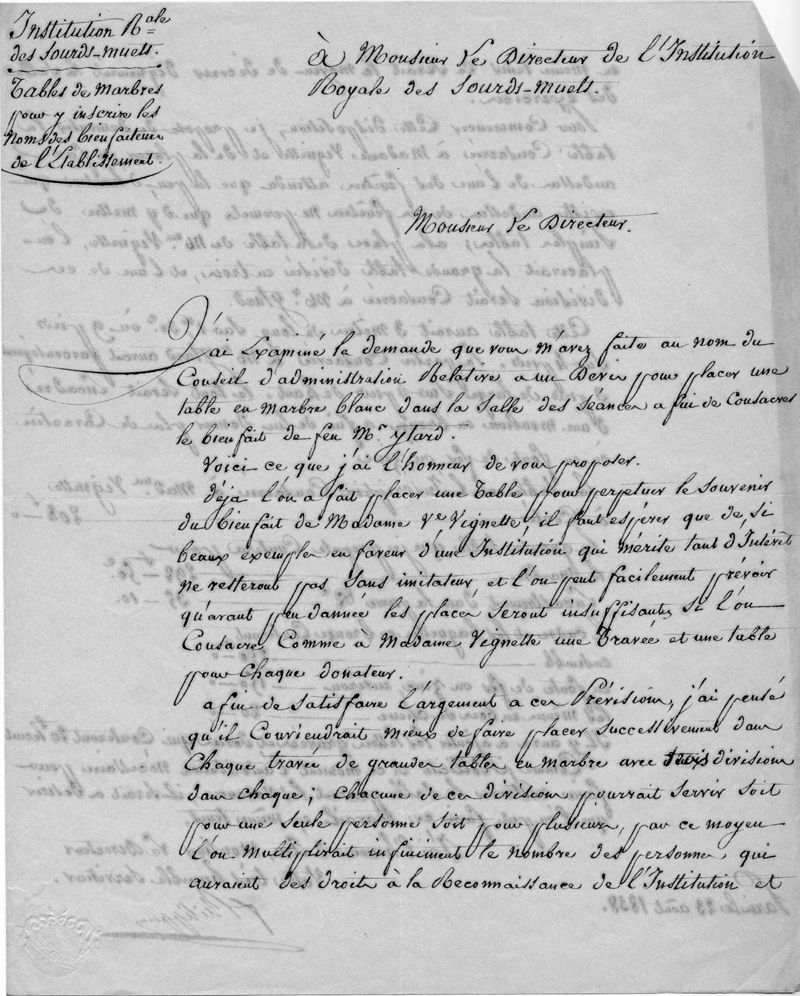 Institution R.ale
des Sourds-muets.
Tables de Marbres
pour y inscrire les
Noms des bienfaiteurs
de l'Etablissement.
à Monsieur Le Directeur de l'Institution
Royale des Sourds-muets.
Monsieur Le Directeur.
J'ai Examiné la demande que vous m'avez faite au nom du
Conseil d'administration Relative a un Devis pour placer une
table en marbre blanc dans la Salle des séances a fin de Consacres
le bienfait de feu Mr. ytard.
Voici ce que j'ai l'honneur de vous proposer.
déja l'on a fait placer une Table pour perpetuer le souvenir
du bienfait de Madame Ve Vignette, il faut espérer que de si
beaux exemples en faveur d'une Institution qui mérite tant d'Intérêt
ne resteront pas sans imitateur, et l'on peut facilement prévoir
qu'avant peu dannée les placés seront insuffisantes si l'on
Consacre Comme à Madame Vignette une Travée et une table
pour Chaque donateur.
a fin de Satisfaire Largement a ces Prévisions, j'ai pensé
qu'il Conviendrait mieux de faire placer successivement dans
Chaque travée de grandes tables en marbre avec trois divisions
dans chaque; chacune de ces divisions pourrait servir soit
pour une seule personne soit pour plusieurs, par ce moyen
l'on multiplirait infiniment le nombre des personnes qui
auraient des droits à la Reconnaissance de l'Institution et
Paris le 23 août 1838.